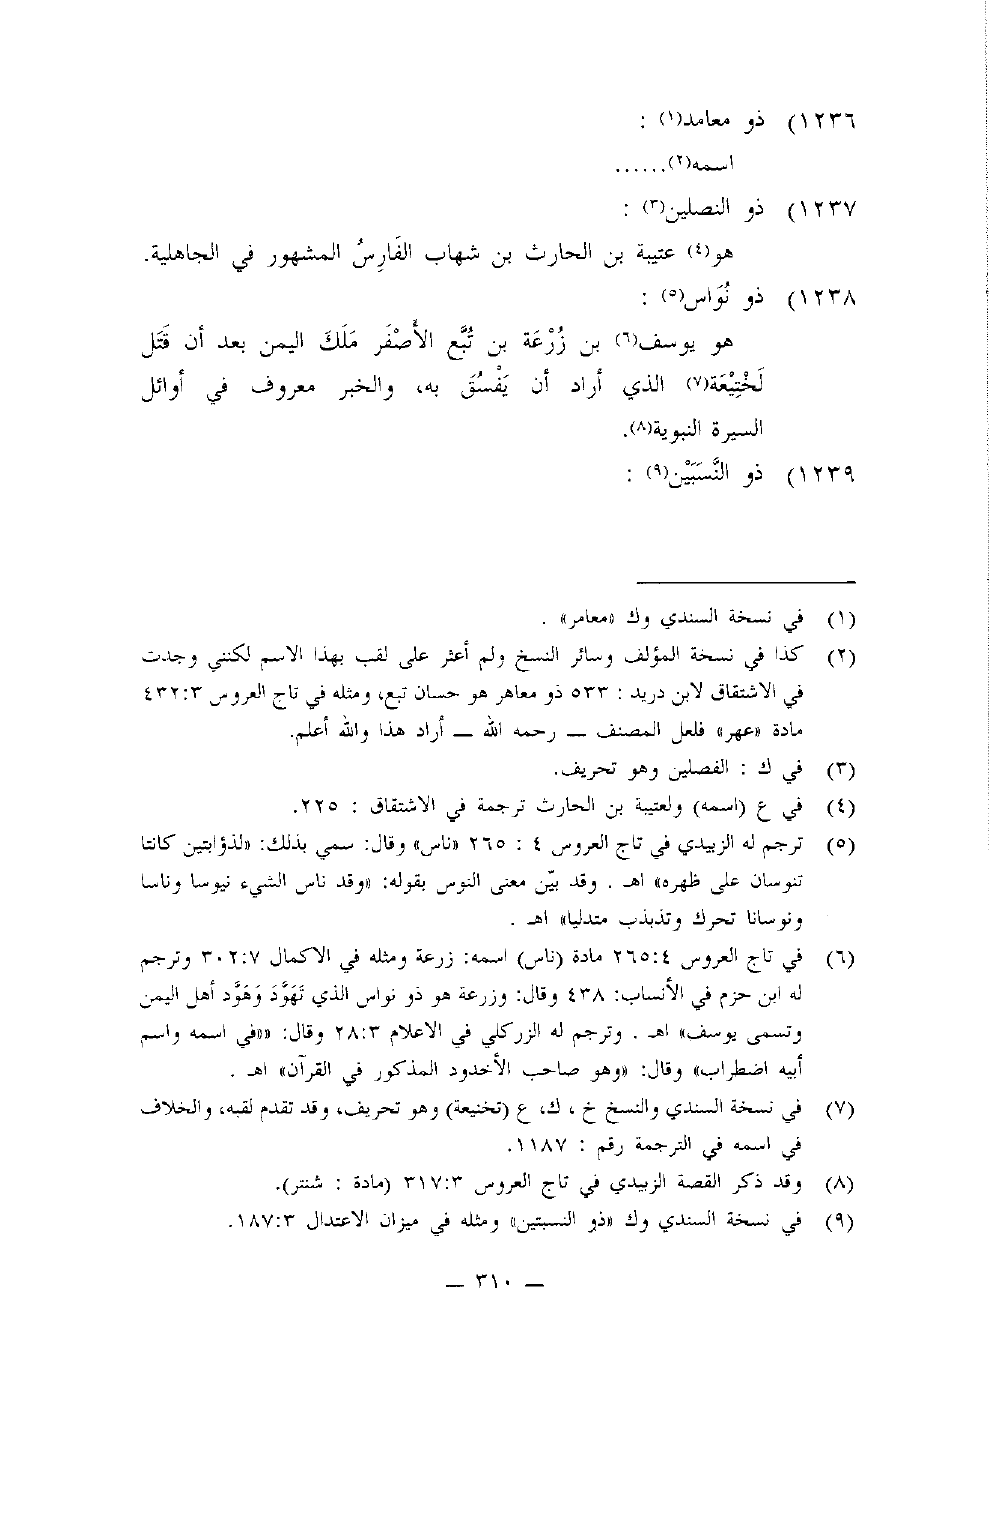 ١٢٣٦) ذو معامد(١) :
اسمه(٢)......
١٢٣٧) ذو النصلين(٣) :
هو(٤) عتيبة بن الحارث بن شهاب الفَارِسُ المشهور في الجاهلية.
١٢٣٨) ذو نُوَاس(٥) :
هو يوسف(٦) بن زُرْعَة بن تُبَّع الأَصْفَر مَلَكَ اليمن بعد أن قَتَل
لَخْتِيْعَة(٧) الذي أراد أن يَفْسُقَ به، والخبر معروف في أوائل
السيرة النبوية(٨).
١٢٣٩) ذو النَّسَبَيْن(٩) :
(١) في نسخة السندي وك «معامر» .
(٢) كذا في نسخة المؤلف وسائر النسخ ولم أعثر على لقب بهذا الاسم لكنني وجدت
في الاشتقاق لابن دريد : ٥٣٣ ذو معاهر هو حسان تبع، ومثله في تاج العروس ٤٣٢:٣
مادة «عهر» فلعل المصنف ــ رحمه الله ــ أراد هذا والله أعلم.
(٣) في ك : الفصلين وهو تحريف.
(٤) في ع (اسمه) ولعتيبة بن الحارث ترجمة في الاشتقاق : ٢٢٥.
(٥) ترجم له الزبيدي في تاج العروس ٤ : ٢٦٥ «ناس» وقال: سمي بذلك: «لذؤابتين كانتا
تنوسان على ظهره» اهـ . وقد بيّن معنى النوس بقوله: «وقد ناس الشيء نيوسا وناسا
ونوسانا تحرك وتذبذب متدليا» اهـ .
(٦) في تاج العروس ٢٦٥:٤ مادة (ناس) اسمه: زرعة ومثله في الاكمال ٣٠٢:٧ وترجم
له ابن حزم في الأنساب: ٤٣٨ وقال: وزرعة هو ذو نواس الذي تَهَوَّدَ وَهَوَّد أهل اليمن
وتسمى يوسف» اهـ . وترجم له الزركلي في الاعلام ٢٨:٣ وقال: ««في اسمه واسم
أبيه اضطراب» وقال: «وهو صاحب الأخدود المذكور في القرآن» اهـ .
(٧) في نسخة السندي والنسخ خ ، ك، ع (تخنيعة) وهو تحريف، وقد تقدم لقبه، والخلاف
في اسمه في الترجمة رقم : ١١٨٧.
(٨) وقد ذكر القصة الزبيدي في تاج العروس ٣١٧:٣ (مادة : شنتر).
(٩) في نسخة السندي وك «ذو النسبتين» ومثله في ميزان الاعتدال ١٨٧:٣.
ــ ٣١٠ ــ